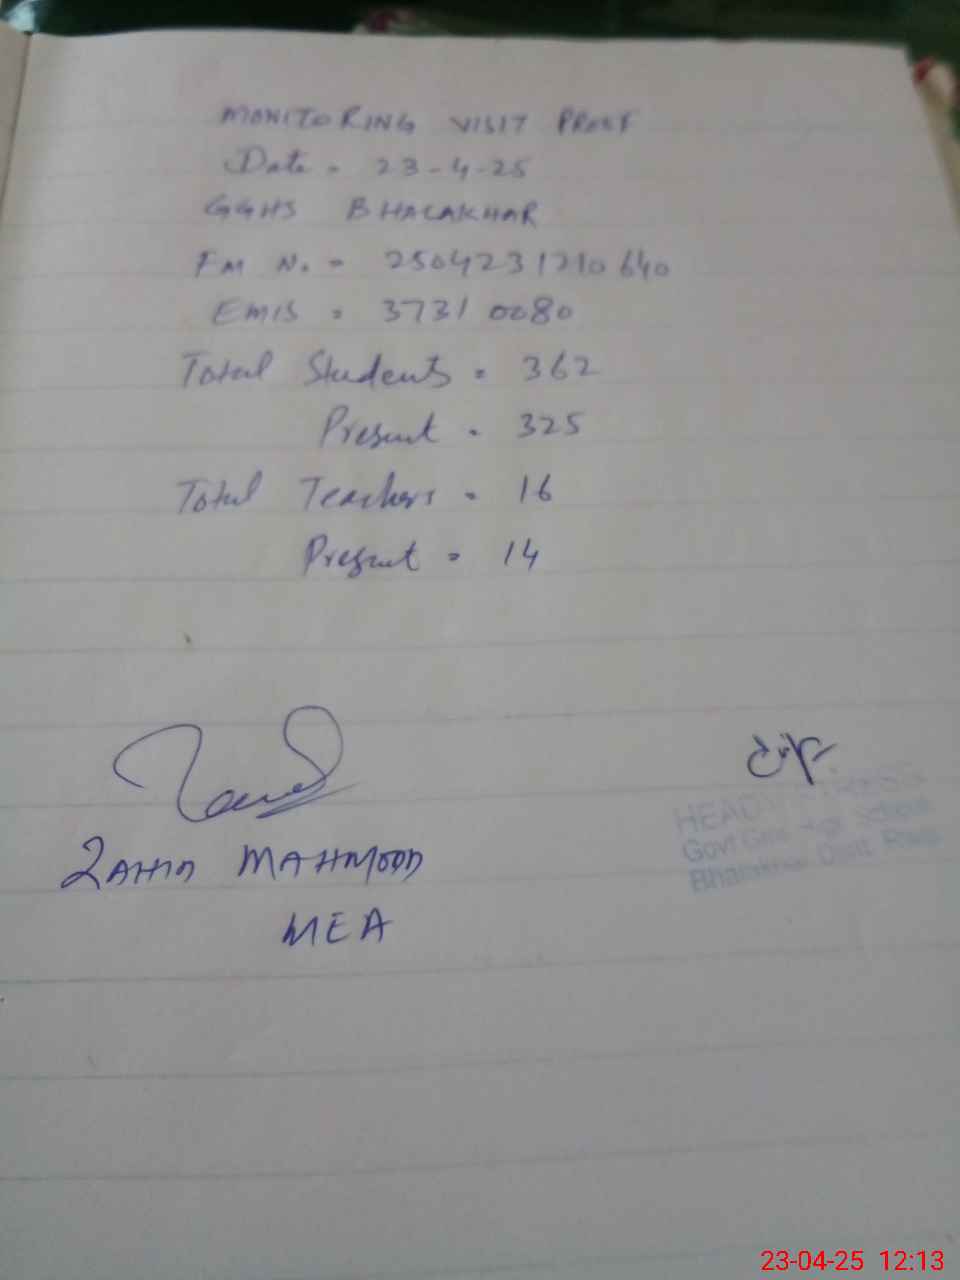 MONITORING VISIT PROOF
Date = 23-4-25
GGHS BHALAKHAR
FM N. = 2504231210640
EMIS = 37310080
Total Students = 362
Present = 325
Total Teachers = 16
Present = 14
ZAHID MAHMOOD
MEA
HEAD
Govt Girls High School
Bhalakhar Distt Rwp
23-04-25 12:13